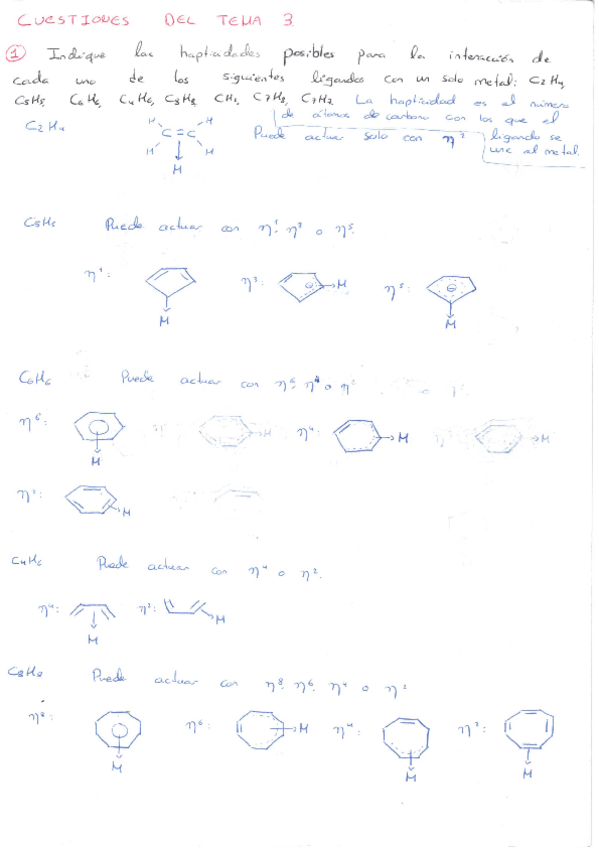 CUESTIONES DEL TEMA 3
① Indique las hapticidades posibles para la interacción de
cada uno de los siguientes ligandos con un solo metal: C2H4,
C5H5, C6H6, C4H6, C8H8, CH2, C7H8, C7H7. La hapticidad es el número
de átomos de carbono con los que el
ligando se
une al metal.
C2H4
H H
C = C
H H
M
Puede actuar solo con η²
C5H5 Puede actuar con η¹, η³ o η⁵.
η¹: M η³: ⊖ M η⁵: ⊖ M
C6H6 Puede actuar con η⁶, η⁴ o η²
η⁶: M η⁴: M
η²: M
C4H6 Puede actuar con η⁴ o η².
η⁴: M η²: M
C8H8 Puede actuar con η⁸, η⁶, η⁴ o η²
η⁸: M η⁶: M η⁴: M η²: M